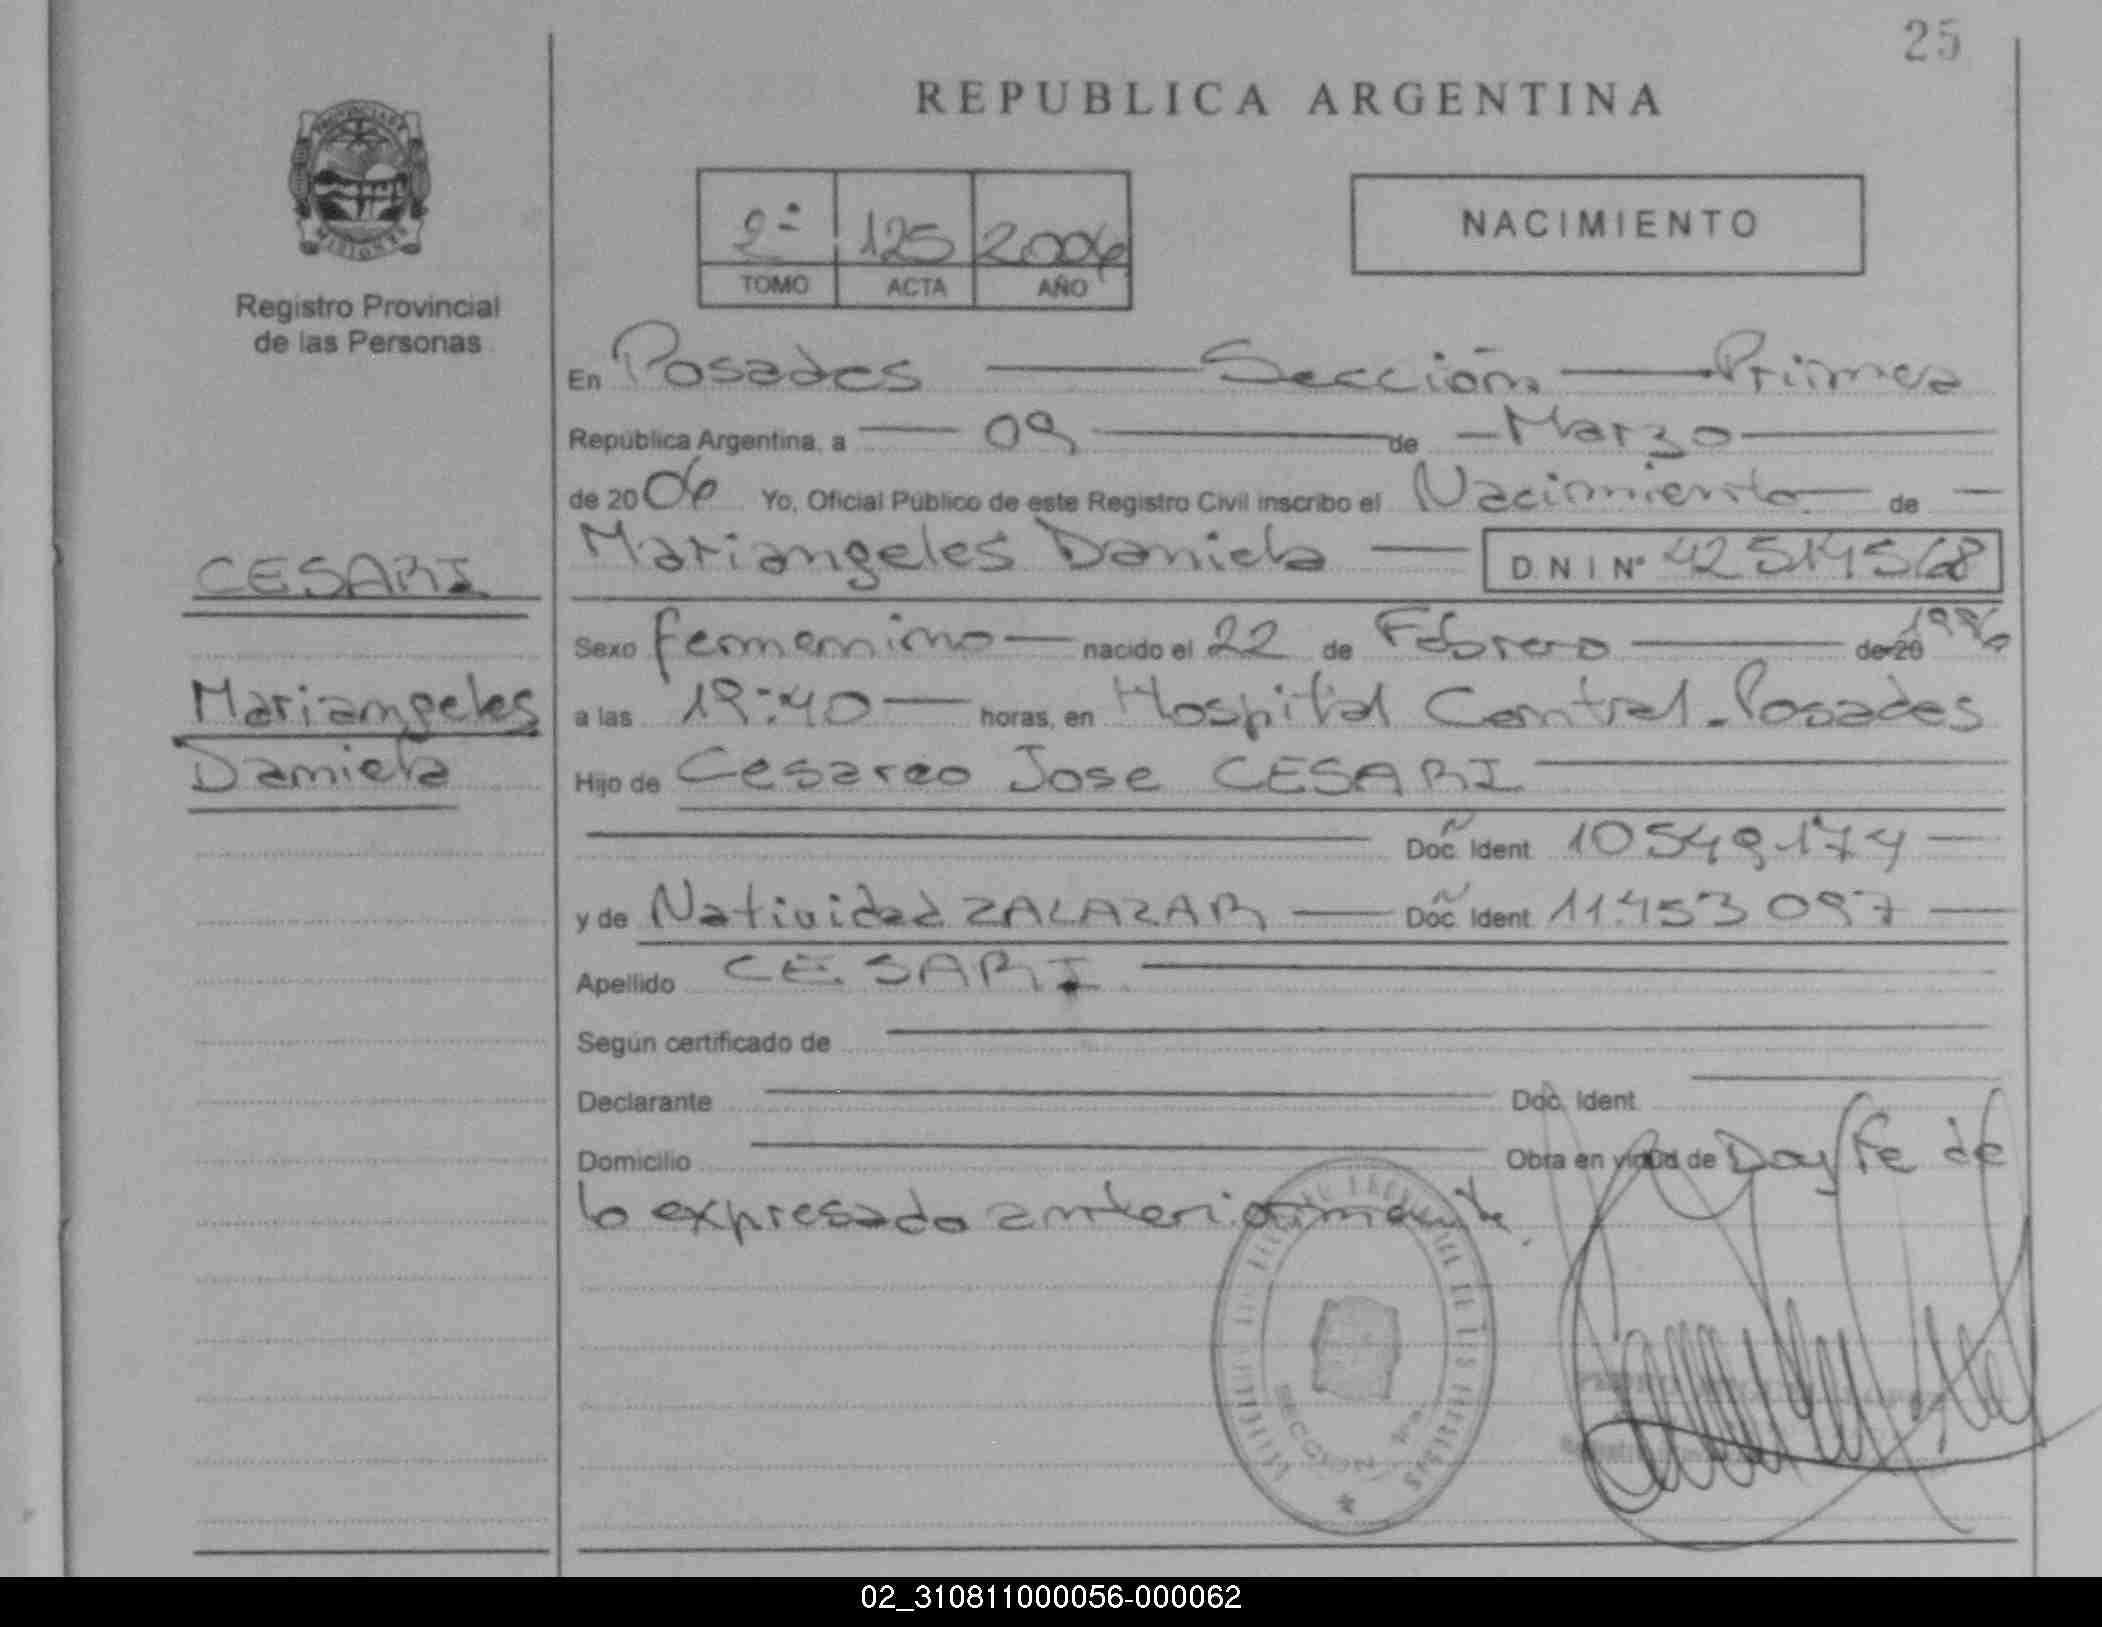 25
REPUBLICA ARGENTINA
2º 125 2006
TOMO ACTA AÑO
NACIMIENTO
Registro Provincial
de las Personas
En Posadas Sección Primera
República Argentina, a 09 de Marzo
de 2006 Yo, Oficial Público de este Registro Civil inscribo el Nacimiento de
CESARI
Mariangeles Daniela
Mariangeles Daniela D N I Nº 42514568
Sexo femenino nacido el 22 de Febrero de 20 1996
a las 19:40 horas, en Hospital Central - Posadas
Hijo de Cesareo Jose CESARI
Doc. Ident. 10549174
y de Natividad ZALAZAR Doc. Ident. 11.453 097
Apellido CESARI
Según certificado de
Declarante Doc. Ident.
Domicilio Obra en virtud de Doy fe de
lo expresado anteriormente.
02_310811000056-000062